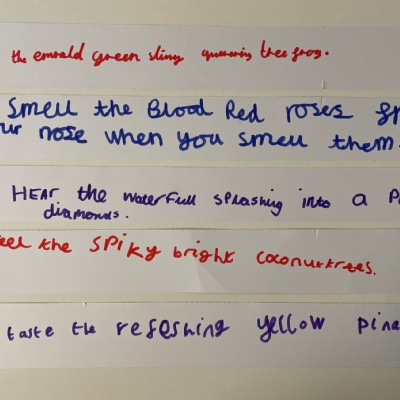 the emerald green slimy quivering tree frog.
Smell the Blood Red roses
nose when you smell them.
HEAR the waterfull splashing into a
diamonds.
the SPiky bright coconuttrees.
taste the refeshing yellow